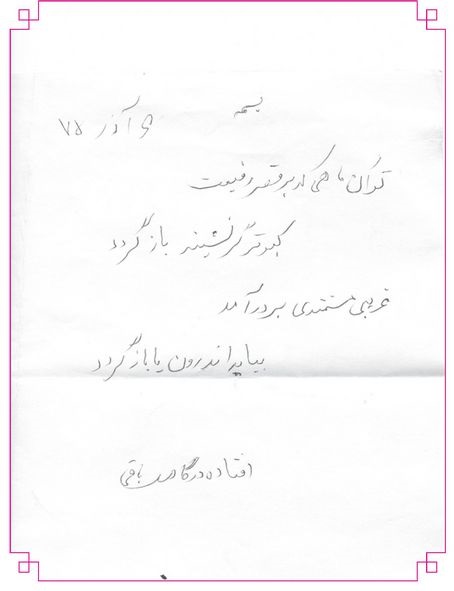 بسمه
۶ آذر ۷۵
تو آن ماهی که بر قصر رفیعت
کبوتر گر نشیند باز گردد
غریبی مستمندی بر در آمد
بیاید اندرون یا باز گردد
افتاده درگاهت باقی